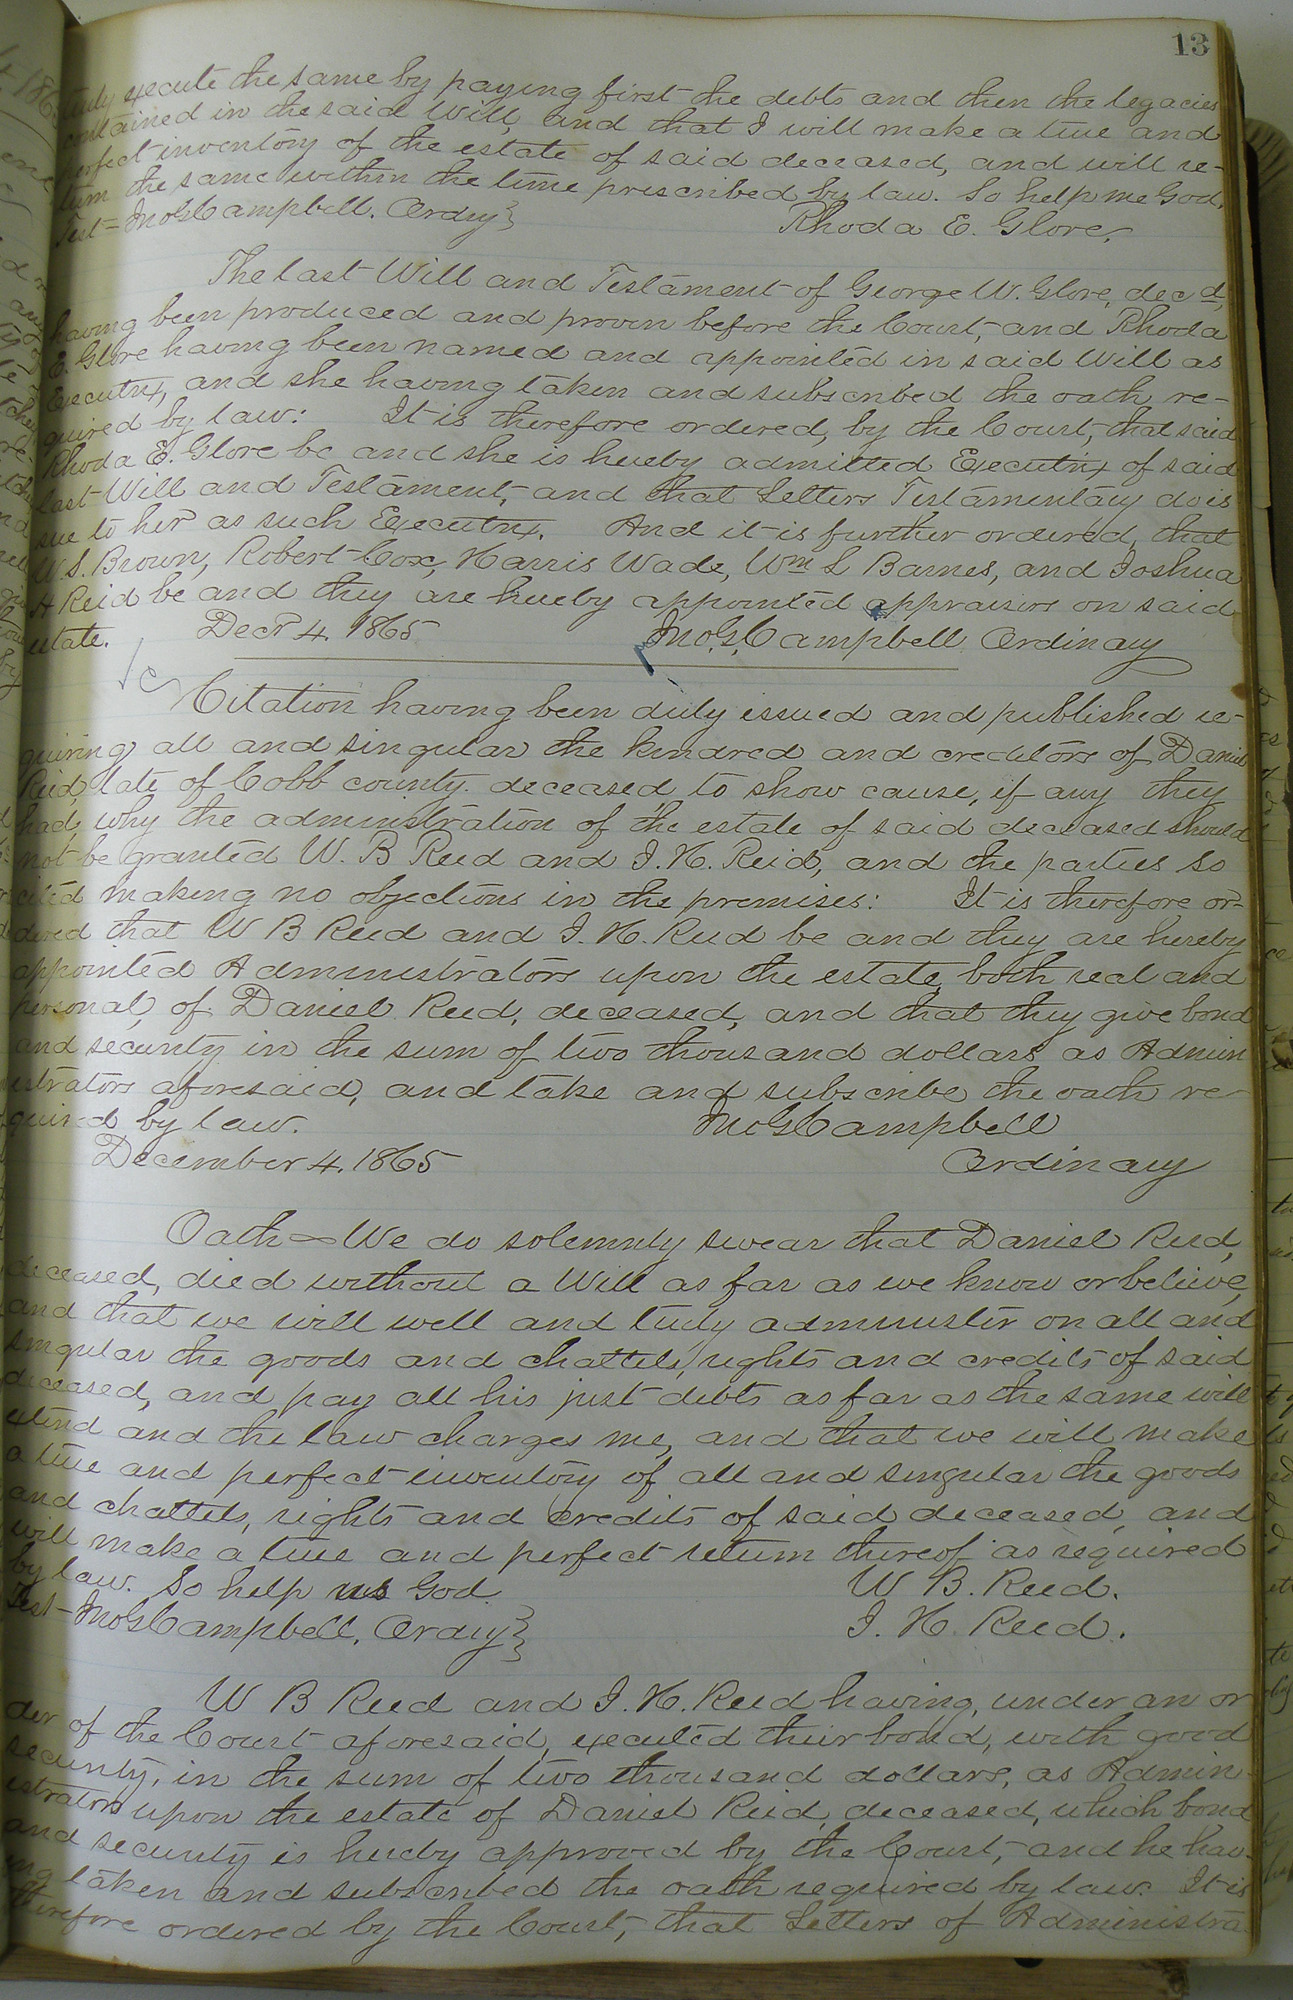 13
truly execute the same by paying first the debts and then the legacies
contained in the said Will, and that I will make a true and
perfect inventory of the estate of said deceased, and will re-
turn the same within the time prescribed by law. So help me God.
Test = Jno. G. Campbell. Ordry } Rhoda E. Glore.
The last Will and Testament of George W. Glore, decd,
having been produced and proven before the Court, and Rhoda
E. Glore having been named and appointed in said Will as
Executrix, and she having taken and subscribed the oath re-
quired by law: It is therefore ordered, by the Court, that said
Rhoda E. Glore be and she is hereby admitted Executrix of said
last Will and Testament, and that Letters Testamentary do is
sue to her as such Executrix. And it is further ordered, that
W. S. Brown, Robert Cox, Harris Wade, Wm L Barnes, and Joshua
H Reid be and they are hereby appointed appraisers on said
estate. Decr 4. 1865 Jno. G. Campbell Ordinary
Citation having been duly issued and published re-
quiring all and singular the kindred and creditors of Daniel
Reid, late of Cobb county deceased to show cause, if any they
had, why the administration of the estate of said deceased should
not be granted W. B Reed and J. H. Reid, and the parties so
cited making no objections in the premises: It is therefore or-
dered that W B Reed and J. H. Reed be and they are hereby
appointed Administrators upon the estate, both real and
personal, of Daniel Reed, deceased, and that they give bond
and security in the sum of two thousand dollars as Admin
istrators aforesaid, and take and subscribe the oath re-
quired by law. Jno G Campbell
December 4. 1865 Ordinary
Oath = We do solemnly swear that Daniel Reed,
deceased, died without a Will as far as we know or believe,
and that we will well and truly administer on all and
singular the goods and chattels, rights and credits of said
deceased, and pay all his just debts as far as the same will
extend and the law charges me, and that we will make
a true and perfect inventory of all and singular the goods
and chattels, rights and credits of said deceased, and
will make a true and perfect return thereof as required
by law. So help us God. W B. Reed.
Test - Jno G Campbell, Ordry } J. H. Reed.
W B Reed and J. H. Reed having, under an or
der of the Court aforesaid, executed their bond, with good
security, in the sum of two thousand dollars, as Admin-
istrators upon the estate of Daniel Reid, deceased, which bond
and security is hereby approved by the Court, and he hav-
ing taken and subscribed the oath required by law. It is
therefore ordered by the Court, that Letters of Administra-